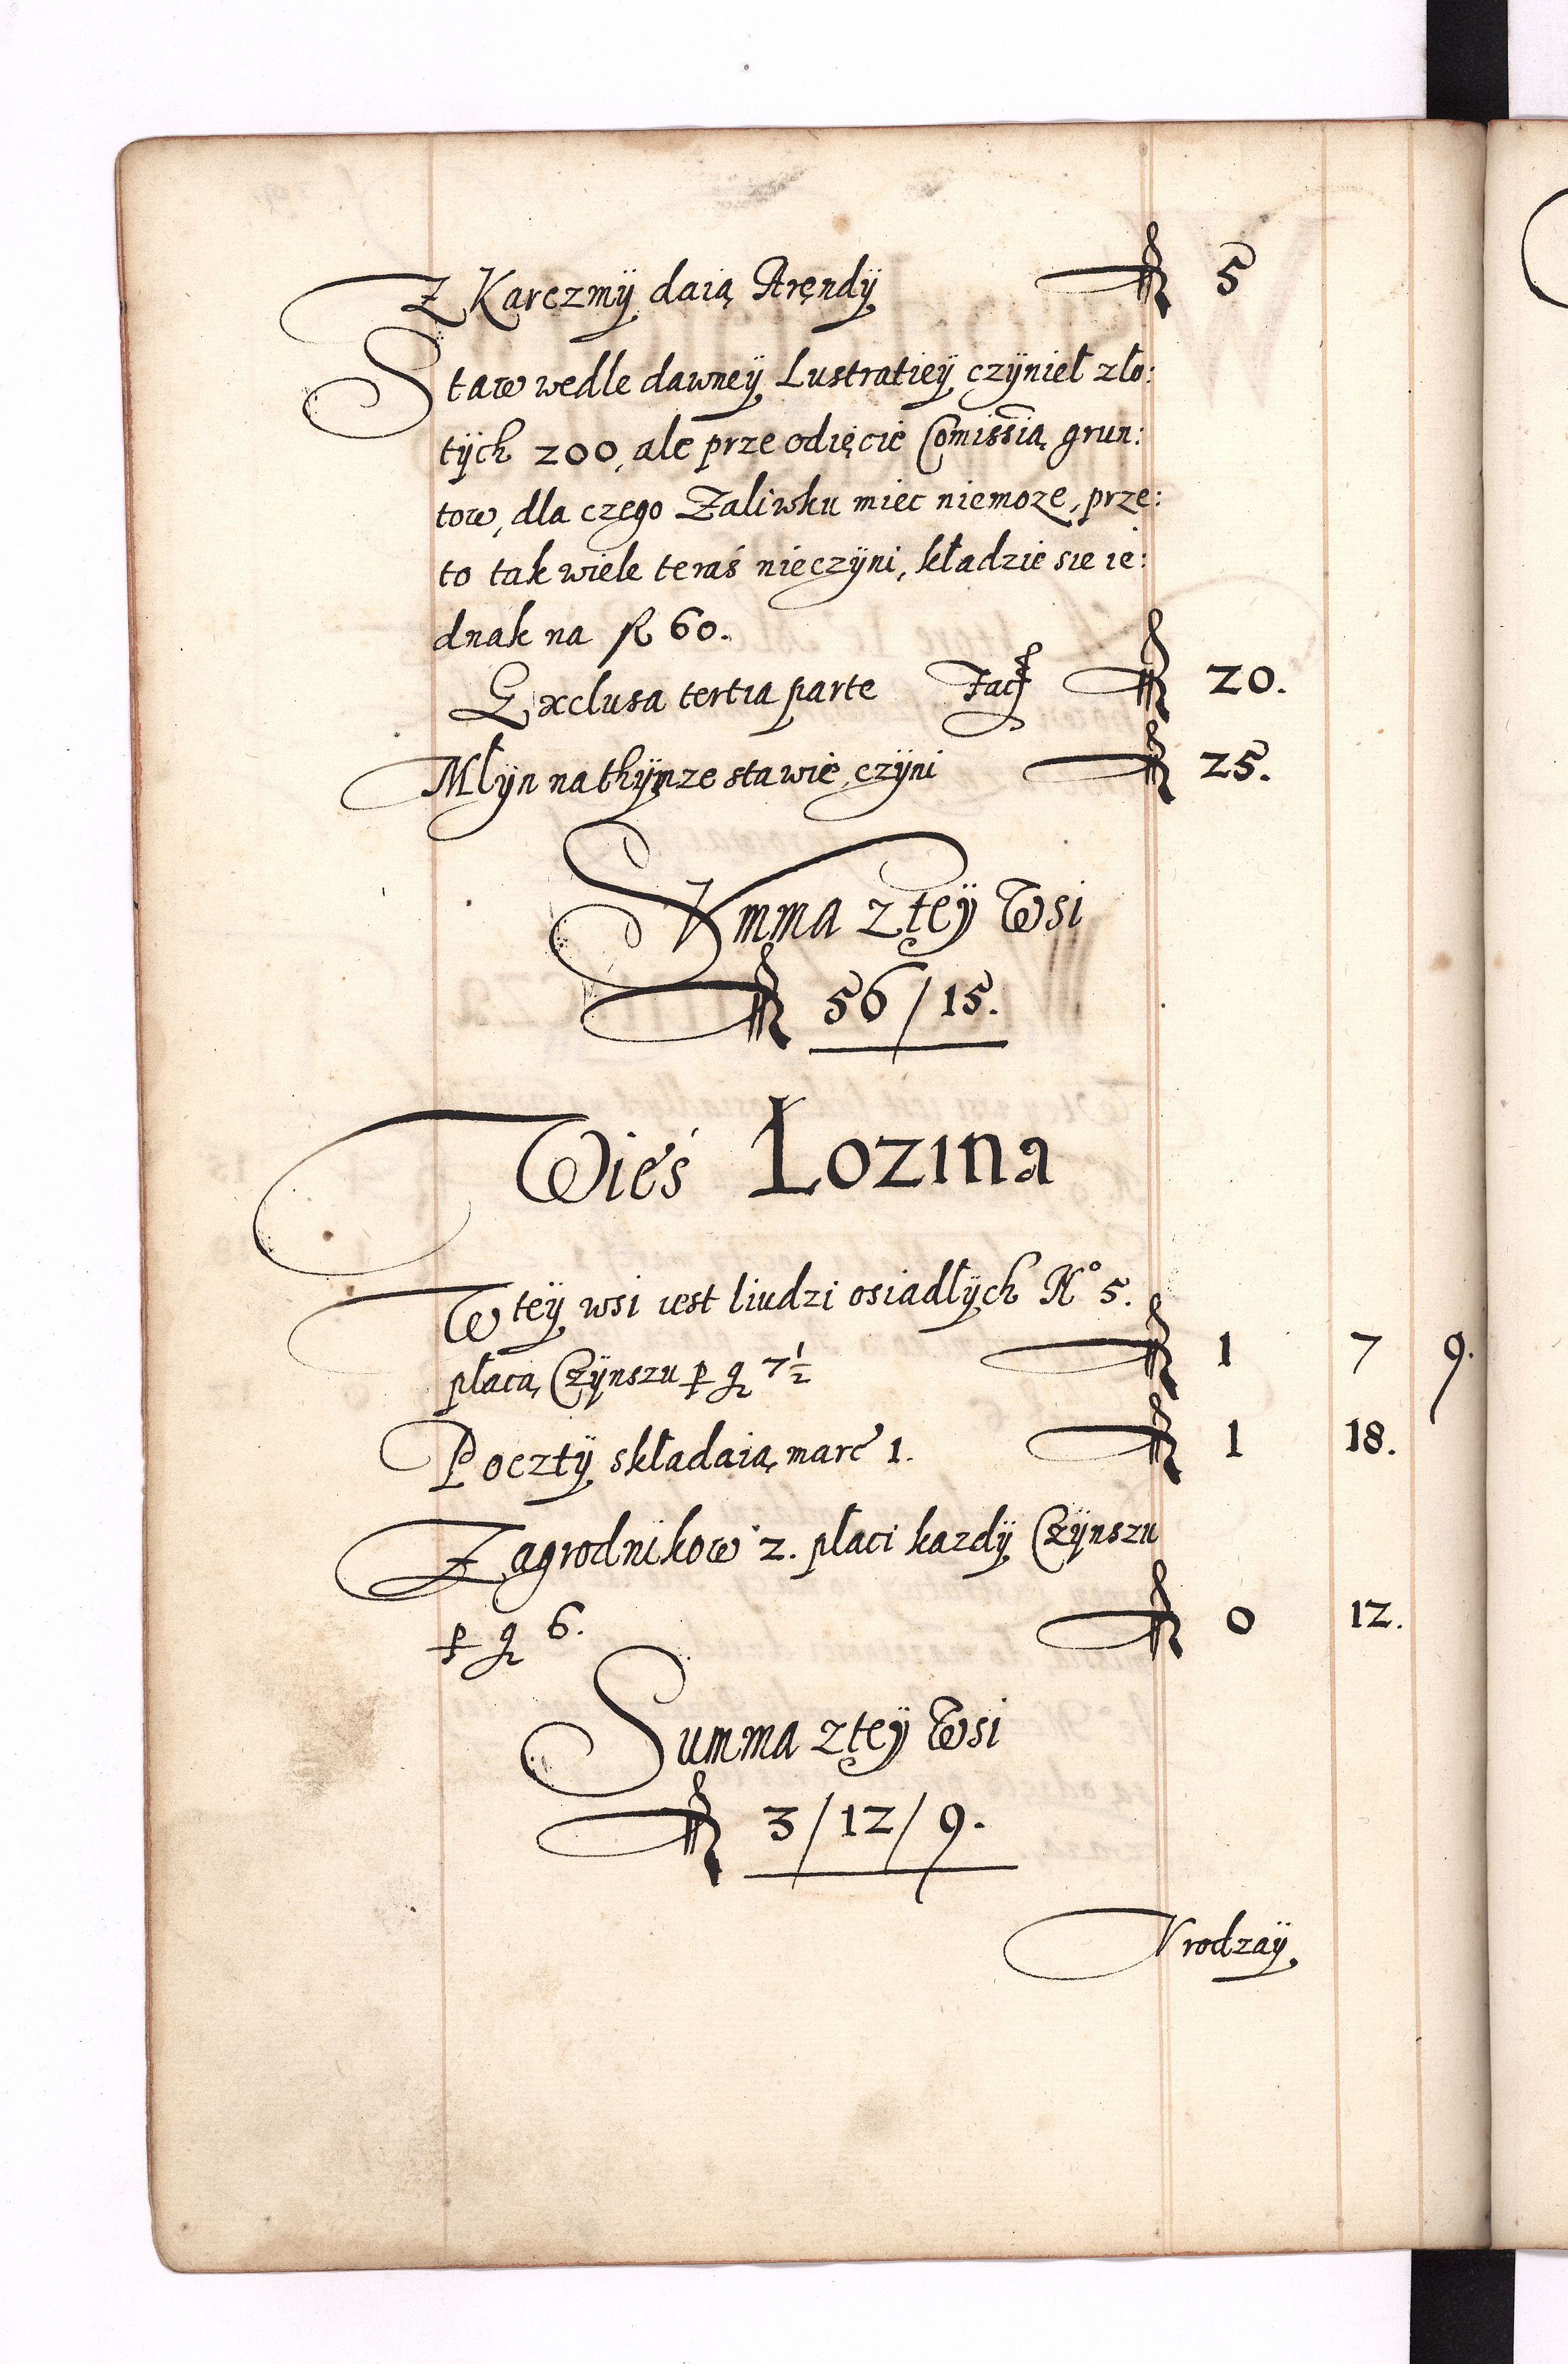 Z Karczmÿ daią Aręndÿ fl 5
Staw wedle dawneÿ Lustratieÿ czÿnieł zło:
tÿch 200, ale prze odięcie Comissią grun:
tow, dla czego Zaliwku miec niemoze, prze:
to tak wiele teraś nieczÿni, kładzie sie ie:
dnak na fl 60.
Exclusa tertia parte Facit fl 20.
Młÿn na thÿmze stawie czÿni fl 25.
Summa z teÿ Wsi
fl 56/15.
Wieś Łozina
W teÿ wsi iest liudzi osiadłÿch No 5.
płacą Czÿnszu p gr 7½ fl 1 7 9.
Pocztÿ składaią marc 1. fl 1 18.
Zagrodnikow 2. płaci kazdÿ Czÿnszu
p gr 6. fl 0 12.
Summa z teÿ Wsi
fl 3/12/9.
Vrodzaÿ